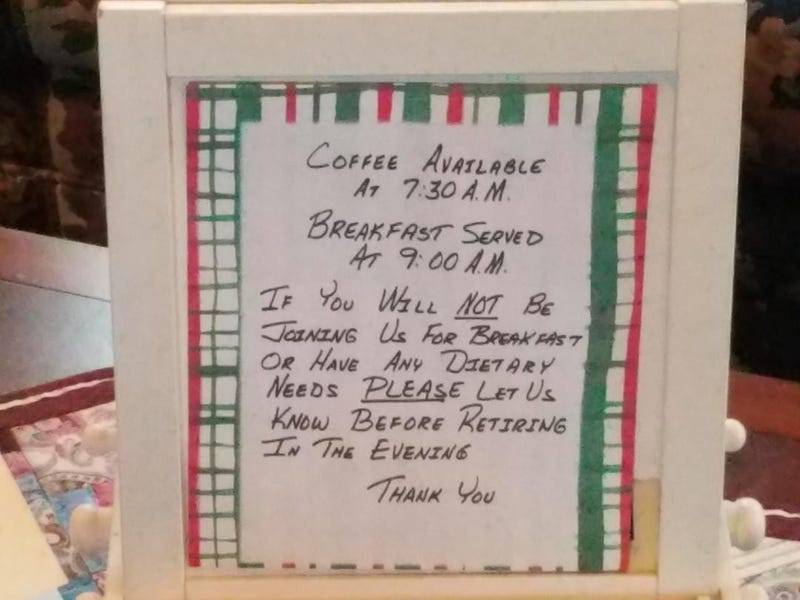 COFFEE AVAILABLE
AT 7:30 A.M.
BREAKFAST SERVED
AT 9:00 A.M.
IF YOU WILL NOT BE
JOINING US FOR BREAKFAST
OR HAVE ANY DIETARY
NEEDS PLEASE LET US
KNOW BEFORE RETIRING
IN THE EVENING
THANK YOU